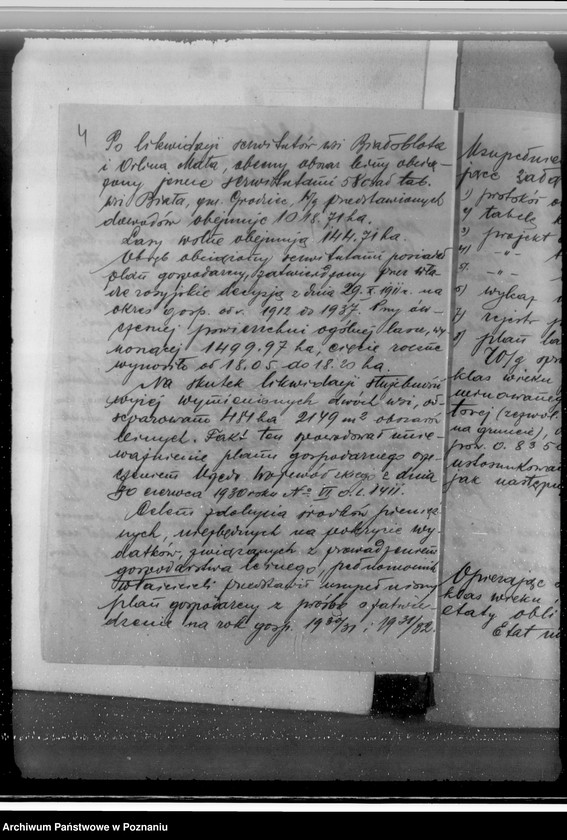 4
Po likwidacji serwitutów wsi Białobłota
i Orlina Mała, obecny obszar leśny obcią-
żony jeszcze serwitutami 58 osad tab.
wsi Biała, gm. Grodziec, w/g przedstawionych
dowodów obejmuje 1018.71 ha.
Lasy wolne obejmują 144.71 ha.
Obręb obciążony serwitutami posiadał
plan gospodarczy, zatwierdzony przez wła-
dze rosyjskie decyzją z dnia 29.X.1911 r. na
okres gosp. od r. 1912 do 1937. Przy ów-
czesnej powierzchni ogólnej lasu, wy-
noszącej 1499.97 ha, cięcie roczne
wynosiło od 18.05 do 18.20 ha.
Na skutek likwidacji służebności
wyżej wymienionych dwóch wsi, od-
separowano 484 ha 2149 m² obszarów
leśnych. Fakt ten spowodował unie-
ważnienie planu gospodarczego orze-
czeniem Urzędu Wojewódzkiego z dnia
30 czerwca 1930 roku №
Celem zdobycia środków pienięż-
nych, niezbędnych na pokrycie wy-
datków, związanych z prowadzeniem
gospodarstwa leśnego, pełnomocnik
właścicieli przedstawił uzupełniony
plan gospodarczy z prośbą o zatwier-
dzenie na rok gosp. 1930/31 i 1931/32.
Uzupełnie
jące zada
1) protokół
2) tabelę
3) projekt
4) -"-
5) -"-
6) wykaz
7) rejestr
8) plan la
W/g spra
klas wieku
na gruncie),
ustosunkowan
jak następu
Opierając
klas wieku
etaty obli
Etat
Archiwum Państwowe w Poznaniu